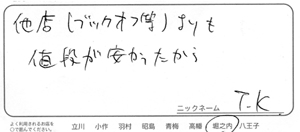 他店(ブックオフ等)よりも
値段が安かったから
ニックネーム T.K
よく利用されるお店を
○で囲んでください。 立川 小作 羽村 昭島 青梅 高幡 堀之内 八王子